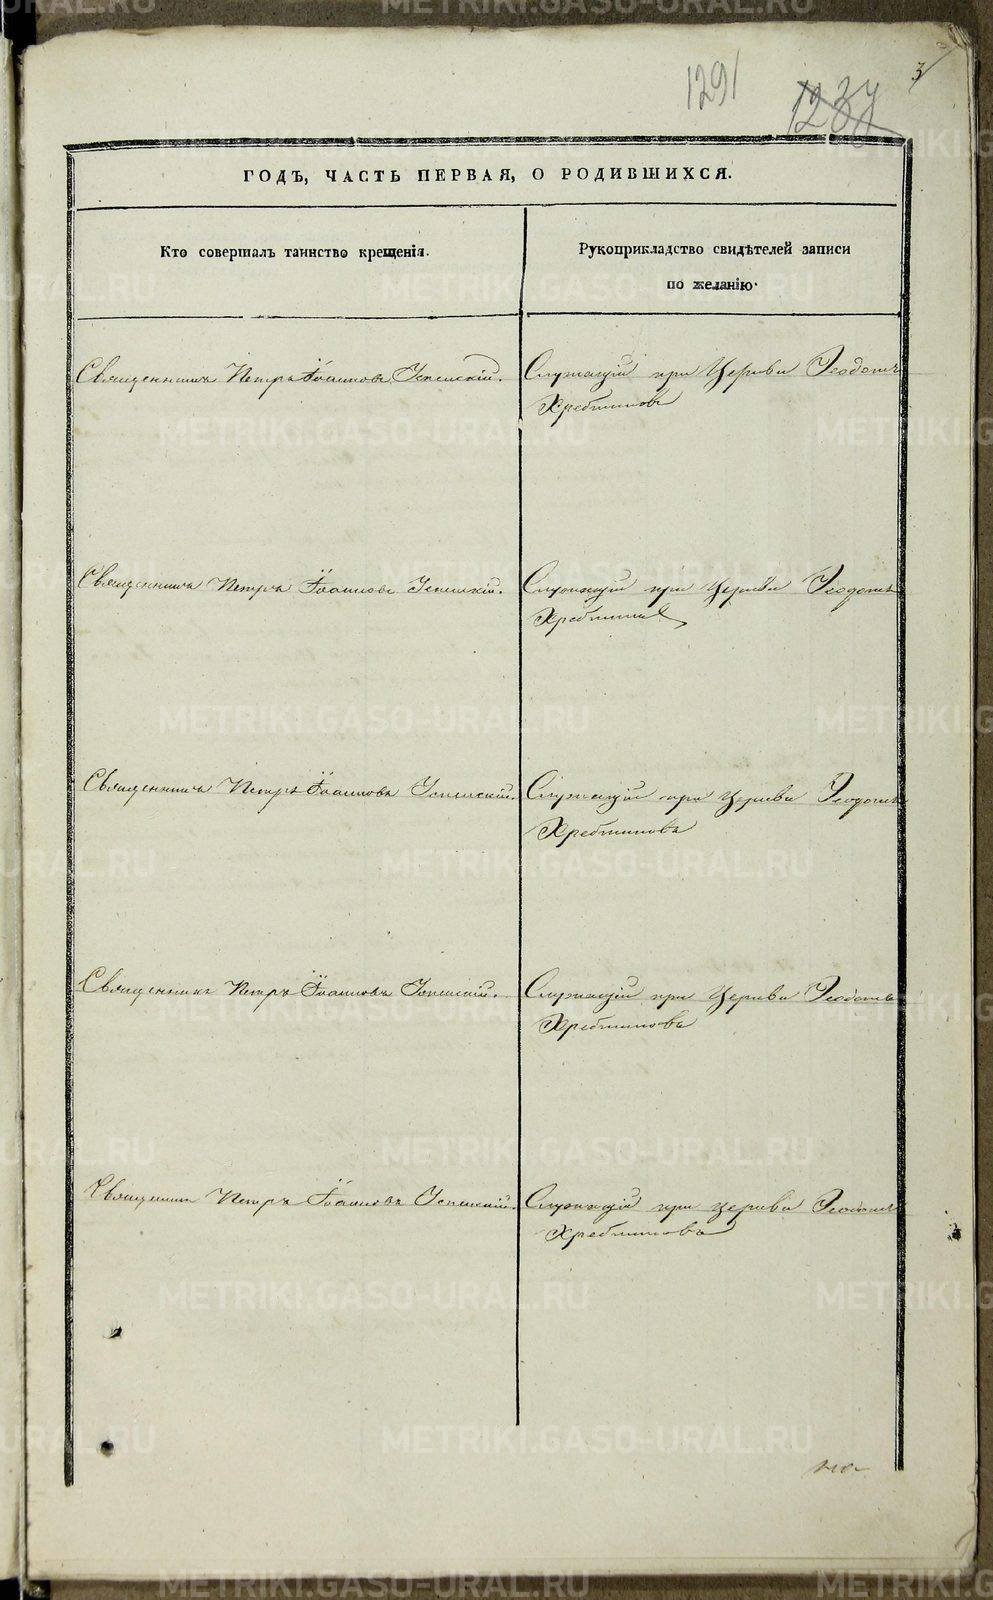 1291
1237
3
ГОДЪ, ЧАСТЬ ПЕРВАЯ, О РОДИВШИХСЯ.
Кто совершалъ таинство крещенія.
Рукоприкладство свидѣтелей записи
по желанію.
Священникъ Петръ Іоанновъ Успенскій.
Служащій при Церкви Ѳеодотъ
Хребтиковъ
Священникъ Петръ Іоанновъ Успенскій.
Служащій при Церкви Ѳеодотъ
Священникъ Петръ Іоанновъ Успенскій.
Служащій при Церкви Ѳеодотъ
Хребтиковъ
Священникъ Петръ Іоанновъ Успенскій.
Служащій при Церкви Ѳеодотъ
Хребтиковъ
Священникъ Петръ Іоанновъ Успенскій.
Служащій при церкви Ѳеодотъ
Хребтиковъ
METRIKI.GASO-URAL.RU